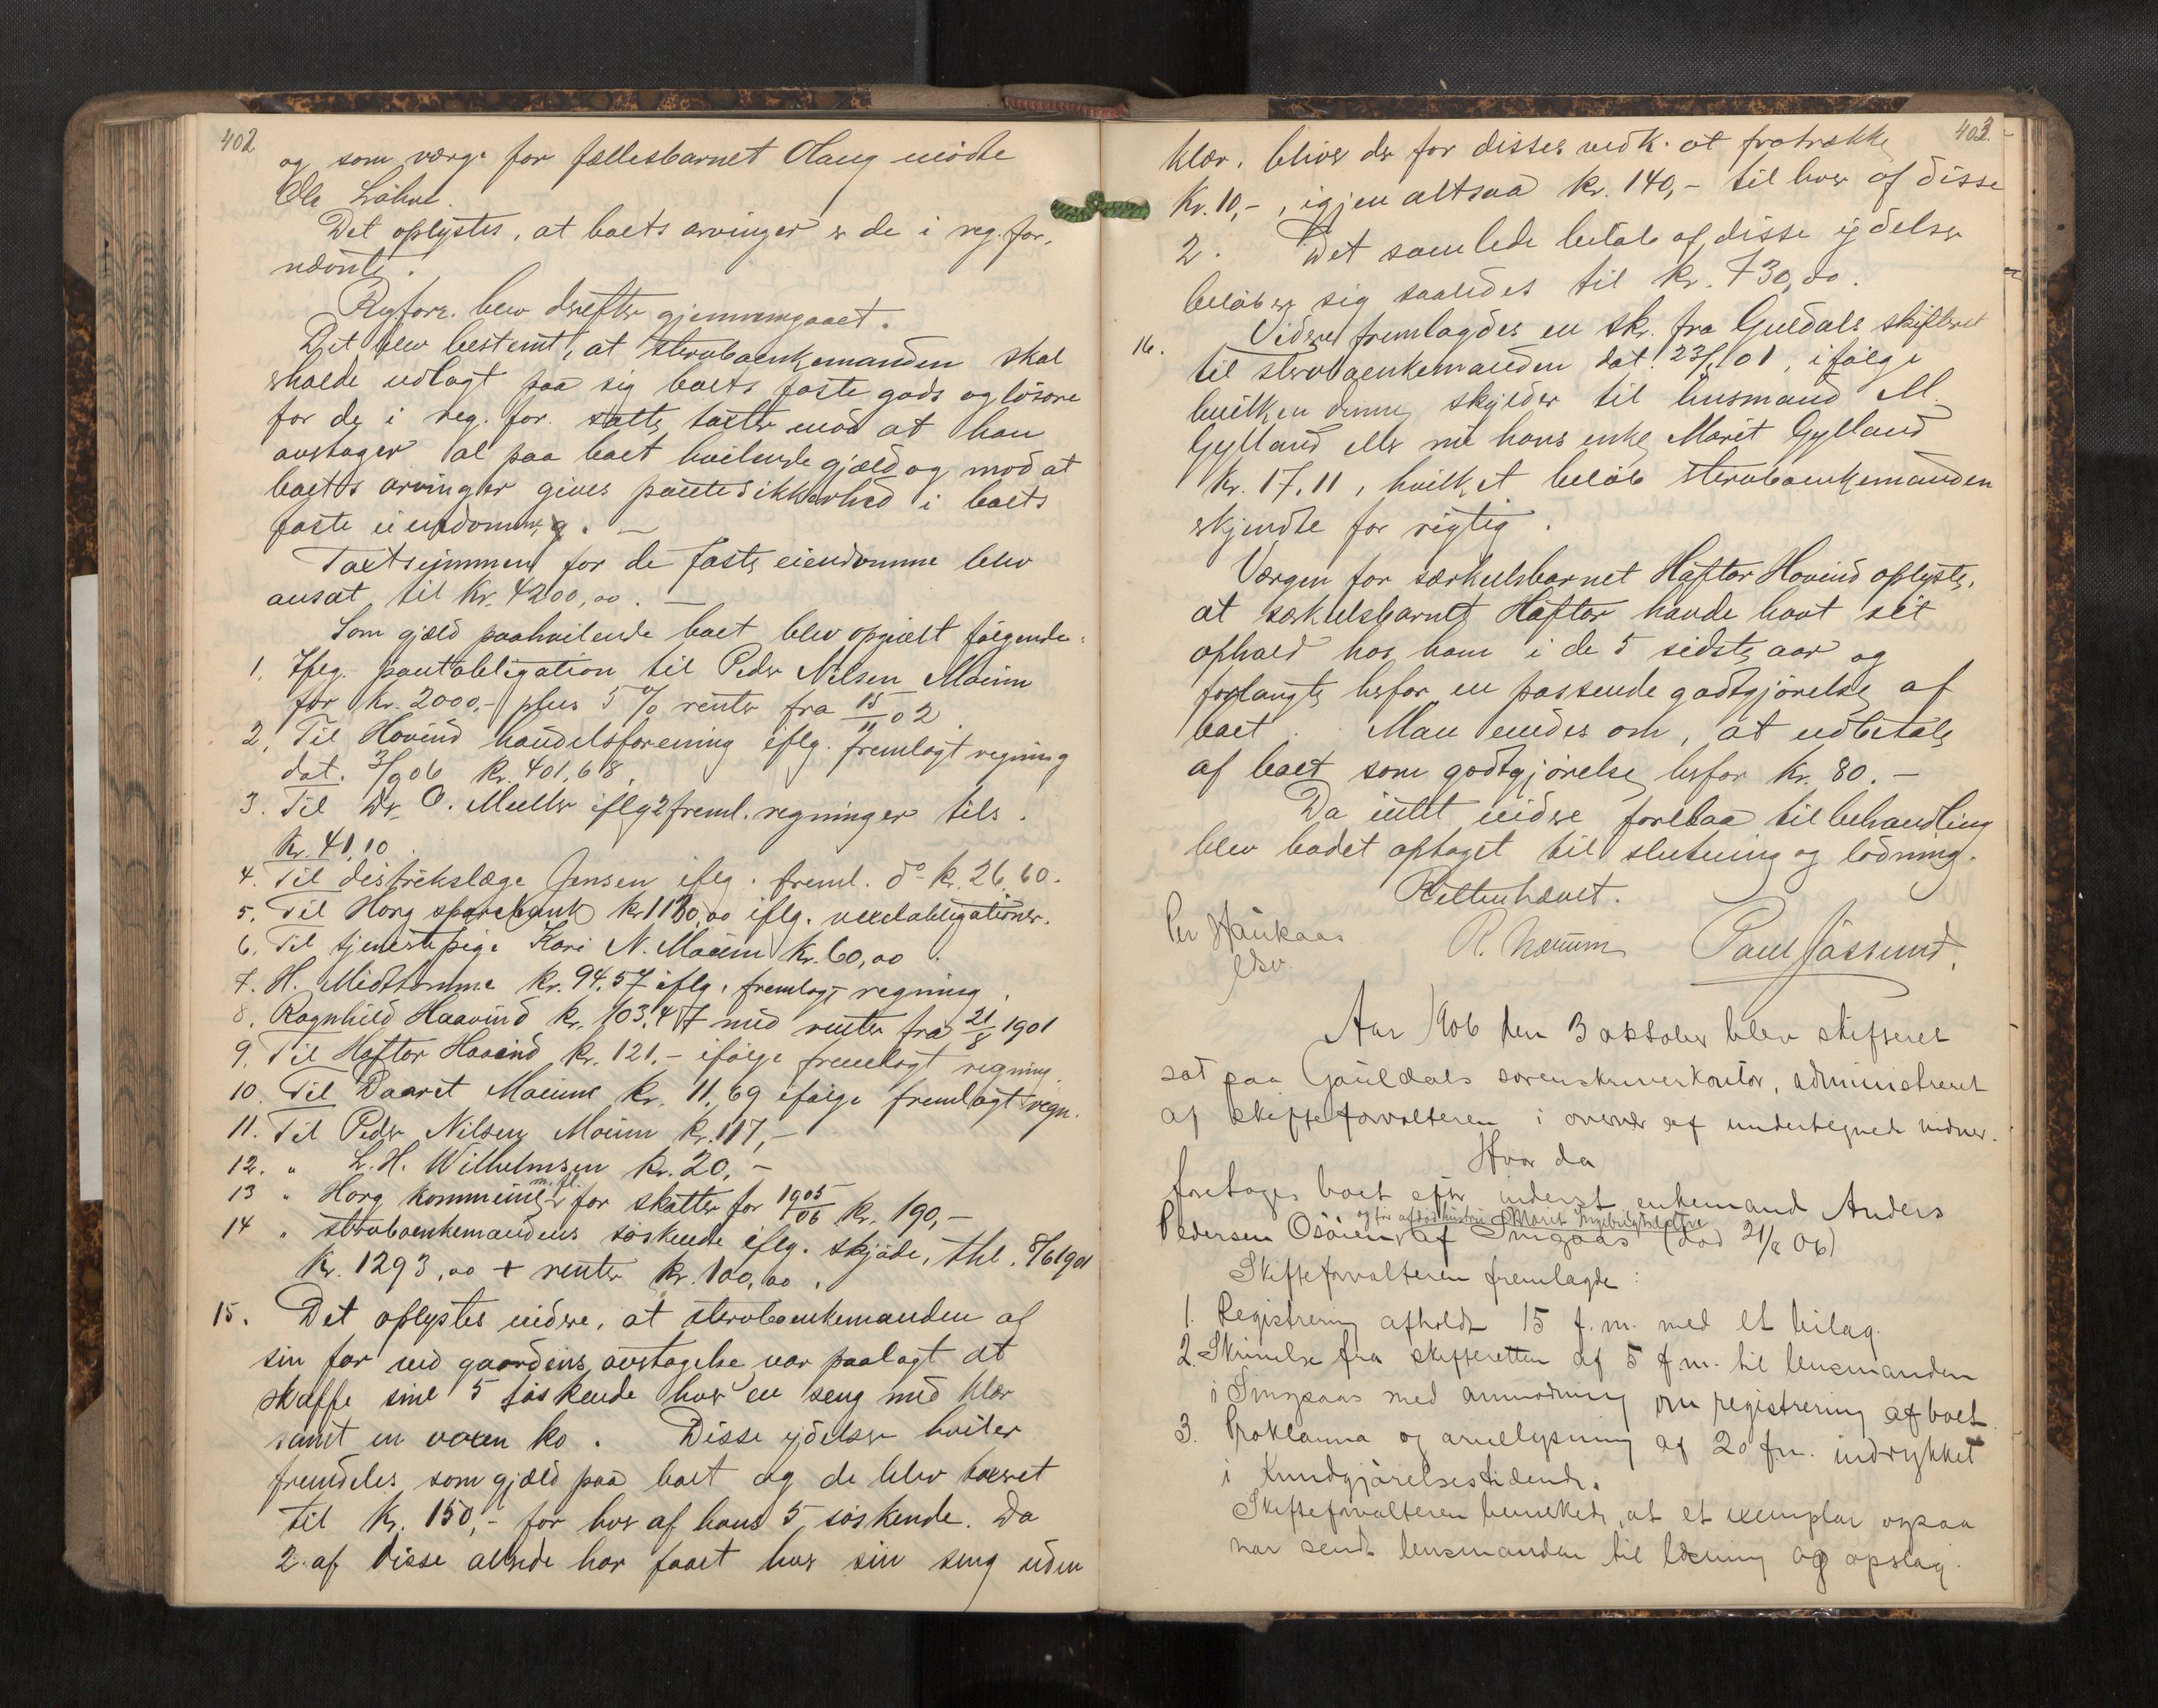 402
og som værge for fællesbarnet Olaug mødte
Ole Løhre.
Det oplystes, at boets arvinger er de i reg.for.
nævnte.
Reg.forr. blev derefter gjennemgaaet.
Det blev bestemt, at stervboenkemanden skal
erholde udlagt paa sig boets faste gods og løsøre
for de i reg. for. satte taxter mod at han
overtager al paa boet hvilende gjæld og mod at
boets arvinger gives pantesikkerhed i boets
faste eiendomme. —
Taxtsummen for de faste eiendomme blev
ansat til Kr. 4200,00. —
Som gjæld paahvilende boet blev opgivet følgende:
1. Iflg. pantobligation til Peder Nilsen Moum
for Kr. 2000,- plus 5% renter fra 15/11 02.
2. Til Hovind handelsforening iflg. fremlagt regning
dat. 3/9 06 kr. 401,68.
3. Til Dr. O. Müller iflg 2 freml. regninger tils.
Kr. 41,10.
4. Til distriktslæge Jensen iflg. freml. do kr. 26,60.
5. Til Horg sparebank kr 1130,00 iflg. vexelobligationer.
6. Til tjenestepige Kari N. Moum kr. 60,00.
7. H. Midttømme kr. 94,57 iflg. fremlagt regning.
8. Ragnhild Haavind kr. 103,47 med renter fra 21/8 1901
9. Til Haftor Haavind kr. 121,- ifølge fremlagt regning
10. Til Daaret Moum kr. 11,69 ifølge fremlagt regn.
11. Til Peder Nilsen Moum kr. 117,-
12. " L. H. Wilhelmsen kr. 20,-
13 " Horg kommune m.fl. for skatter for 1905/06 kr. 190,-
14 " stervboenkemandens søskende iflg. skjøde, thl. 8/6 1901
Kr. 1293,00 + renter kr. 100,00.
15. Det oplystes videre, at stervboenkemanden af
sin far ved gaardens overtagelse var paalagt at
skaffe sine 5 søskende hver en seng med klær
samt en voxen ko. Disse ydelser hviler
fremdeles som gjæld paa boet og de blev taxeret
til Kr. 150,- for hver af hans 5 søskende. Da
2 af disse allerede har faaet hver sin seng uden
403.
klær, bliver der for disses vedk. at fratrække
Kr. 10,-, igjen altsaa kr. 140,- til hver af disse
2. Det samlede beløb af disse ydelser
beløber sig saaledes til kr. 730,00.
16. Videre fremlagdes en skr. fra Guldals skifteret
til stervboenkemanden dat. 23/ 01, ifølge
hvilken denne skylder til husmand M.
Gylland eller nu hans enke Marit Gylland
Kr. 17,11, hvilket beløb stervboenkemanden
erkjendte for rigtig.
Værgen for særkulsbarnet Haftor Hovind oplyste,
at særkulsbarnet Haftor havde havt sit
ophold hos ham i de 5 sidste aar og
forlangte herfor en passende godtgjørelse af
boet. Man enedes om, at udbetale
af boet som godtgjørelse herfor Kr. 80.-
Da intet videre forelaa til behandling
blev bodet optaget til slutning og lodning.
Retten hævet.
Per Haukaas
R. Nærum Paul Jåssund.
Aar 1906 den 3 oktober blev skifteret
sat paa Gauldals sorenskriverkontor, administreret
af skifteforvalteren i overvær af undertegnede vidner.
Hvor da
foretoges boet efter inderst enkemand Anders
og før afdød hustru Marit Ingebrigtsdatter
Pedersen Osøien af Singsaas (død 21/8 06)
Skifteforvalteren fremlagde:
1. Registrering afholdt 15 f.m. med et bilag.
2. Skrivelse fra skifteretten af 5 f.m. til lensmanden
i Singsaas med anmodning om registrering af boet
3. Proklama og arvelysning af 20 f.m. indrykket
i Kundgjørelsestidende.
Skifteforvalteren bemerkede, at et exemplar ogsaa
var sendt lensmanden til læsning og opslag.